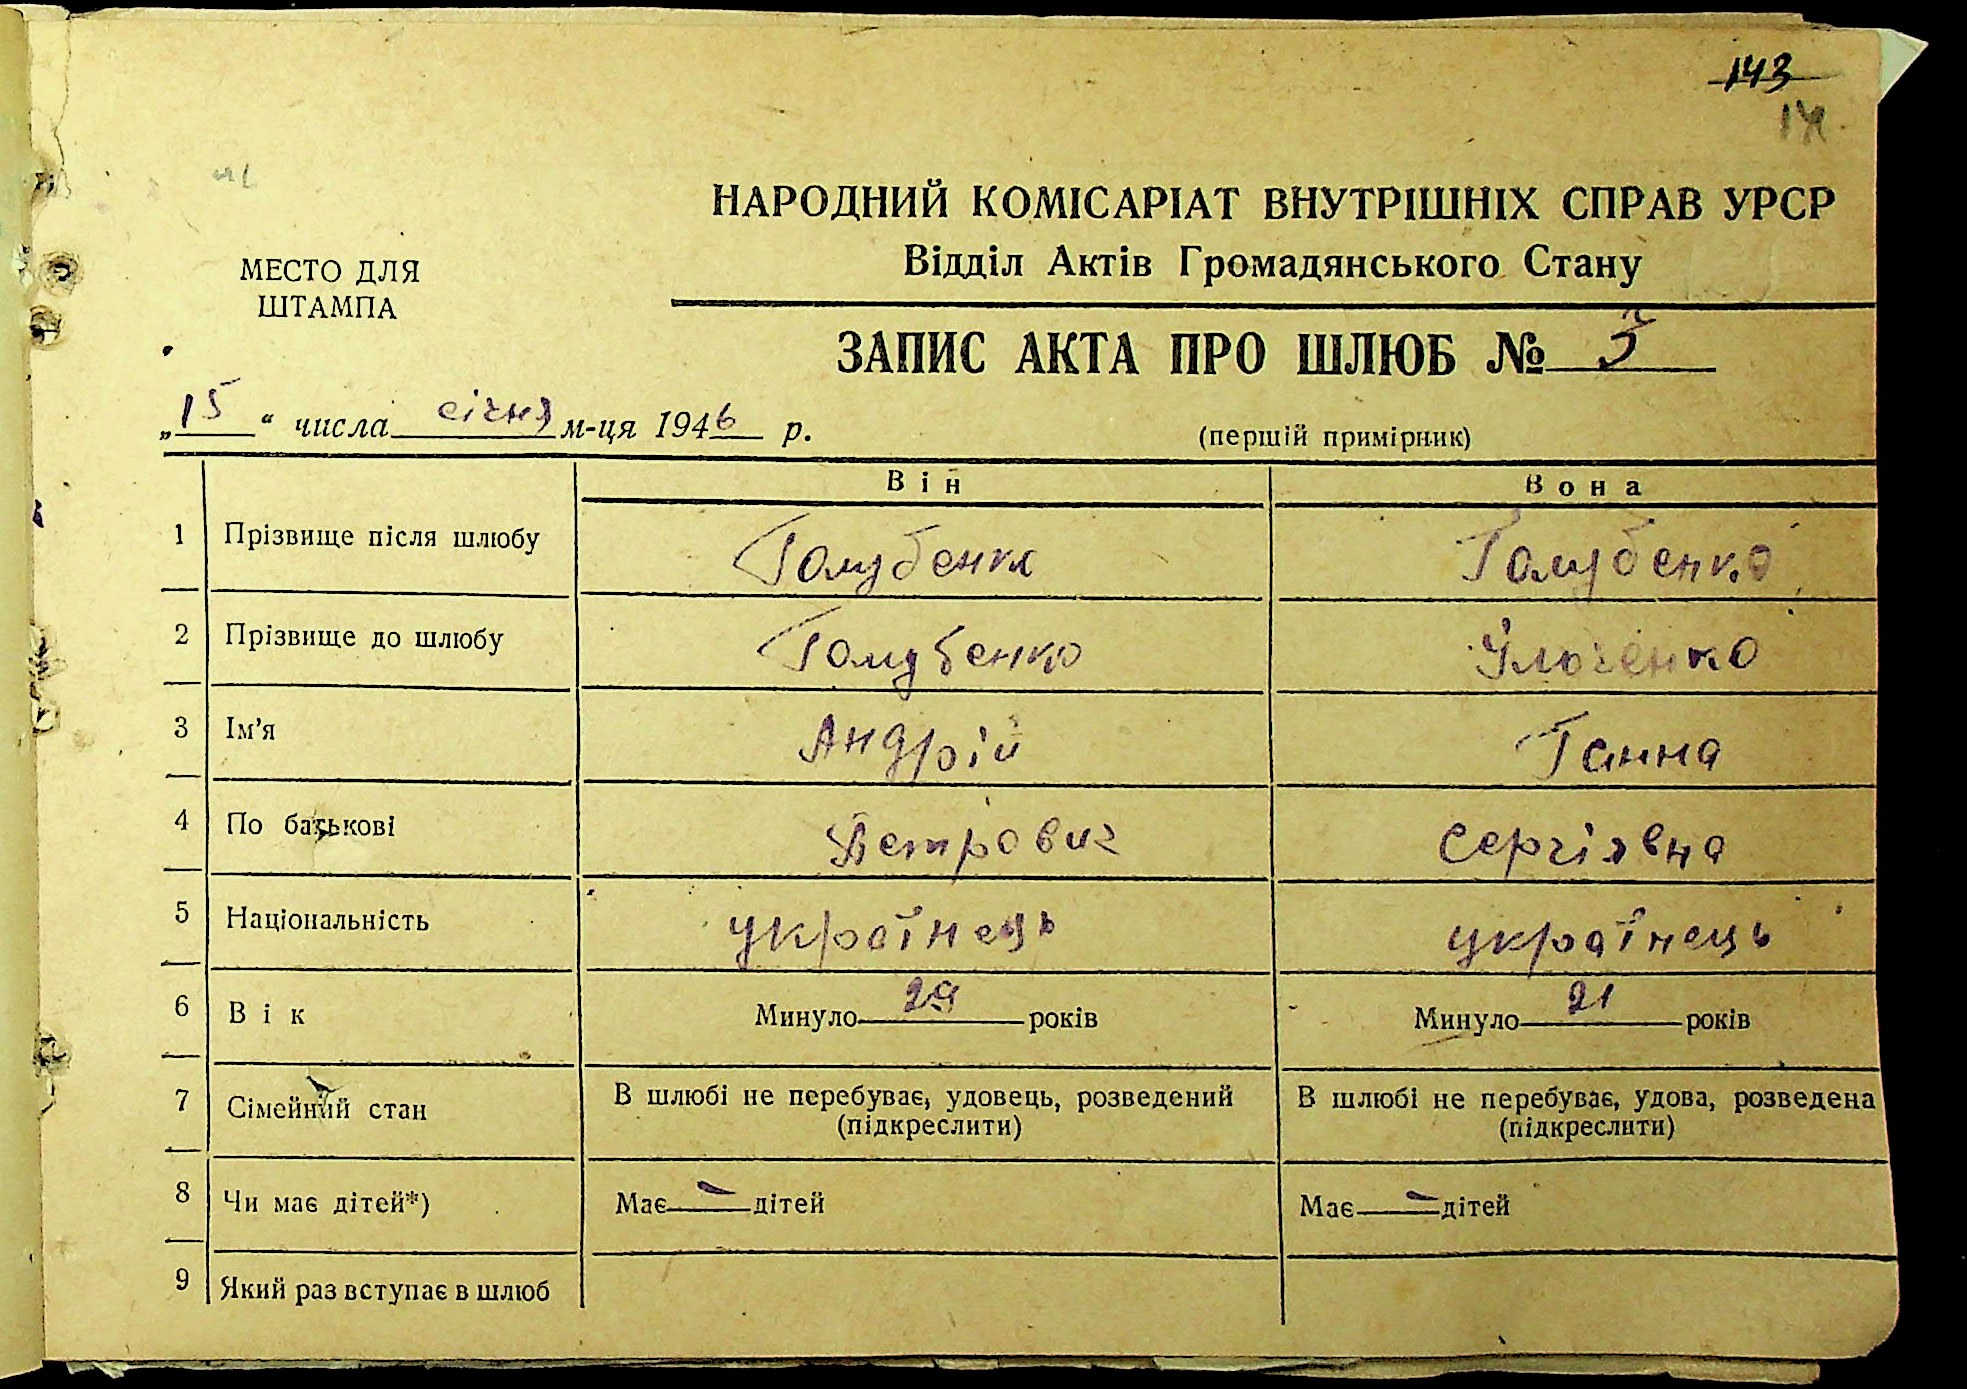 143
НАРОДНИЙ КОМІСАРІАТ ВНУТРІШНІХ СПРАВ УРСР
Відділ Актів Громадянського Стану
МЕСТО ДЛЯ
ШТАМПА
ЗАПИС АКТА ПРО ШЛЮБ № 3
„15“ числа січня м-ця 1946 р.
(першій примірник)
Він Вона
1 Прізвище після шлюбу Голубенко Голубенко
2 Прізвище до шлюбу Голубенко Ульченко
3 Ім'я Андрій Ганна
4 По батькові Петрович Сергіявна
5 Національність українець українець
6 Вік Минуло 29 років Минуло 21 років
7 Сімейний стан В шлюбі не перебуває, удовець, розведений В шлюбі не перебуває, удова, розведена
(підкреслити) (підкреслити)
8 Чи має дітей*) Має — дітей Має — дітей
9 Який раз вступає в шлюб